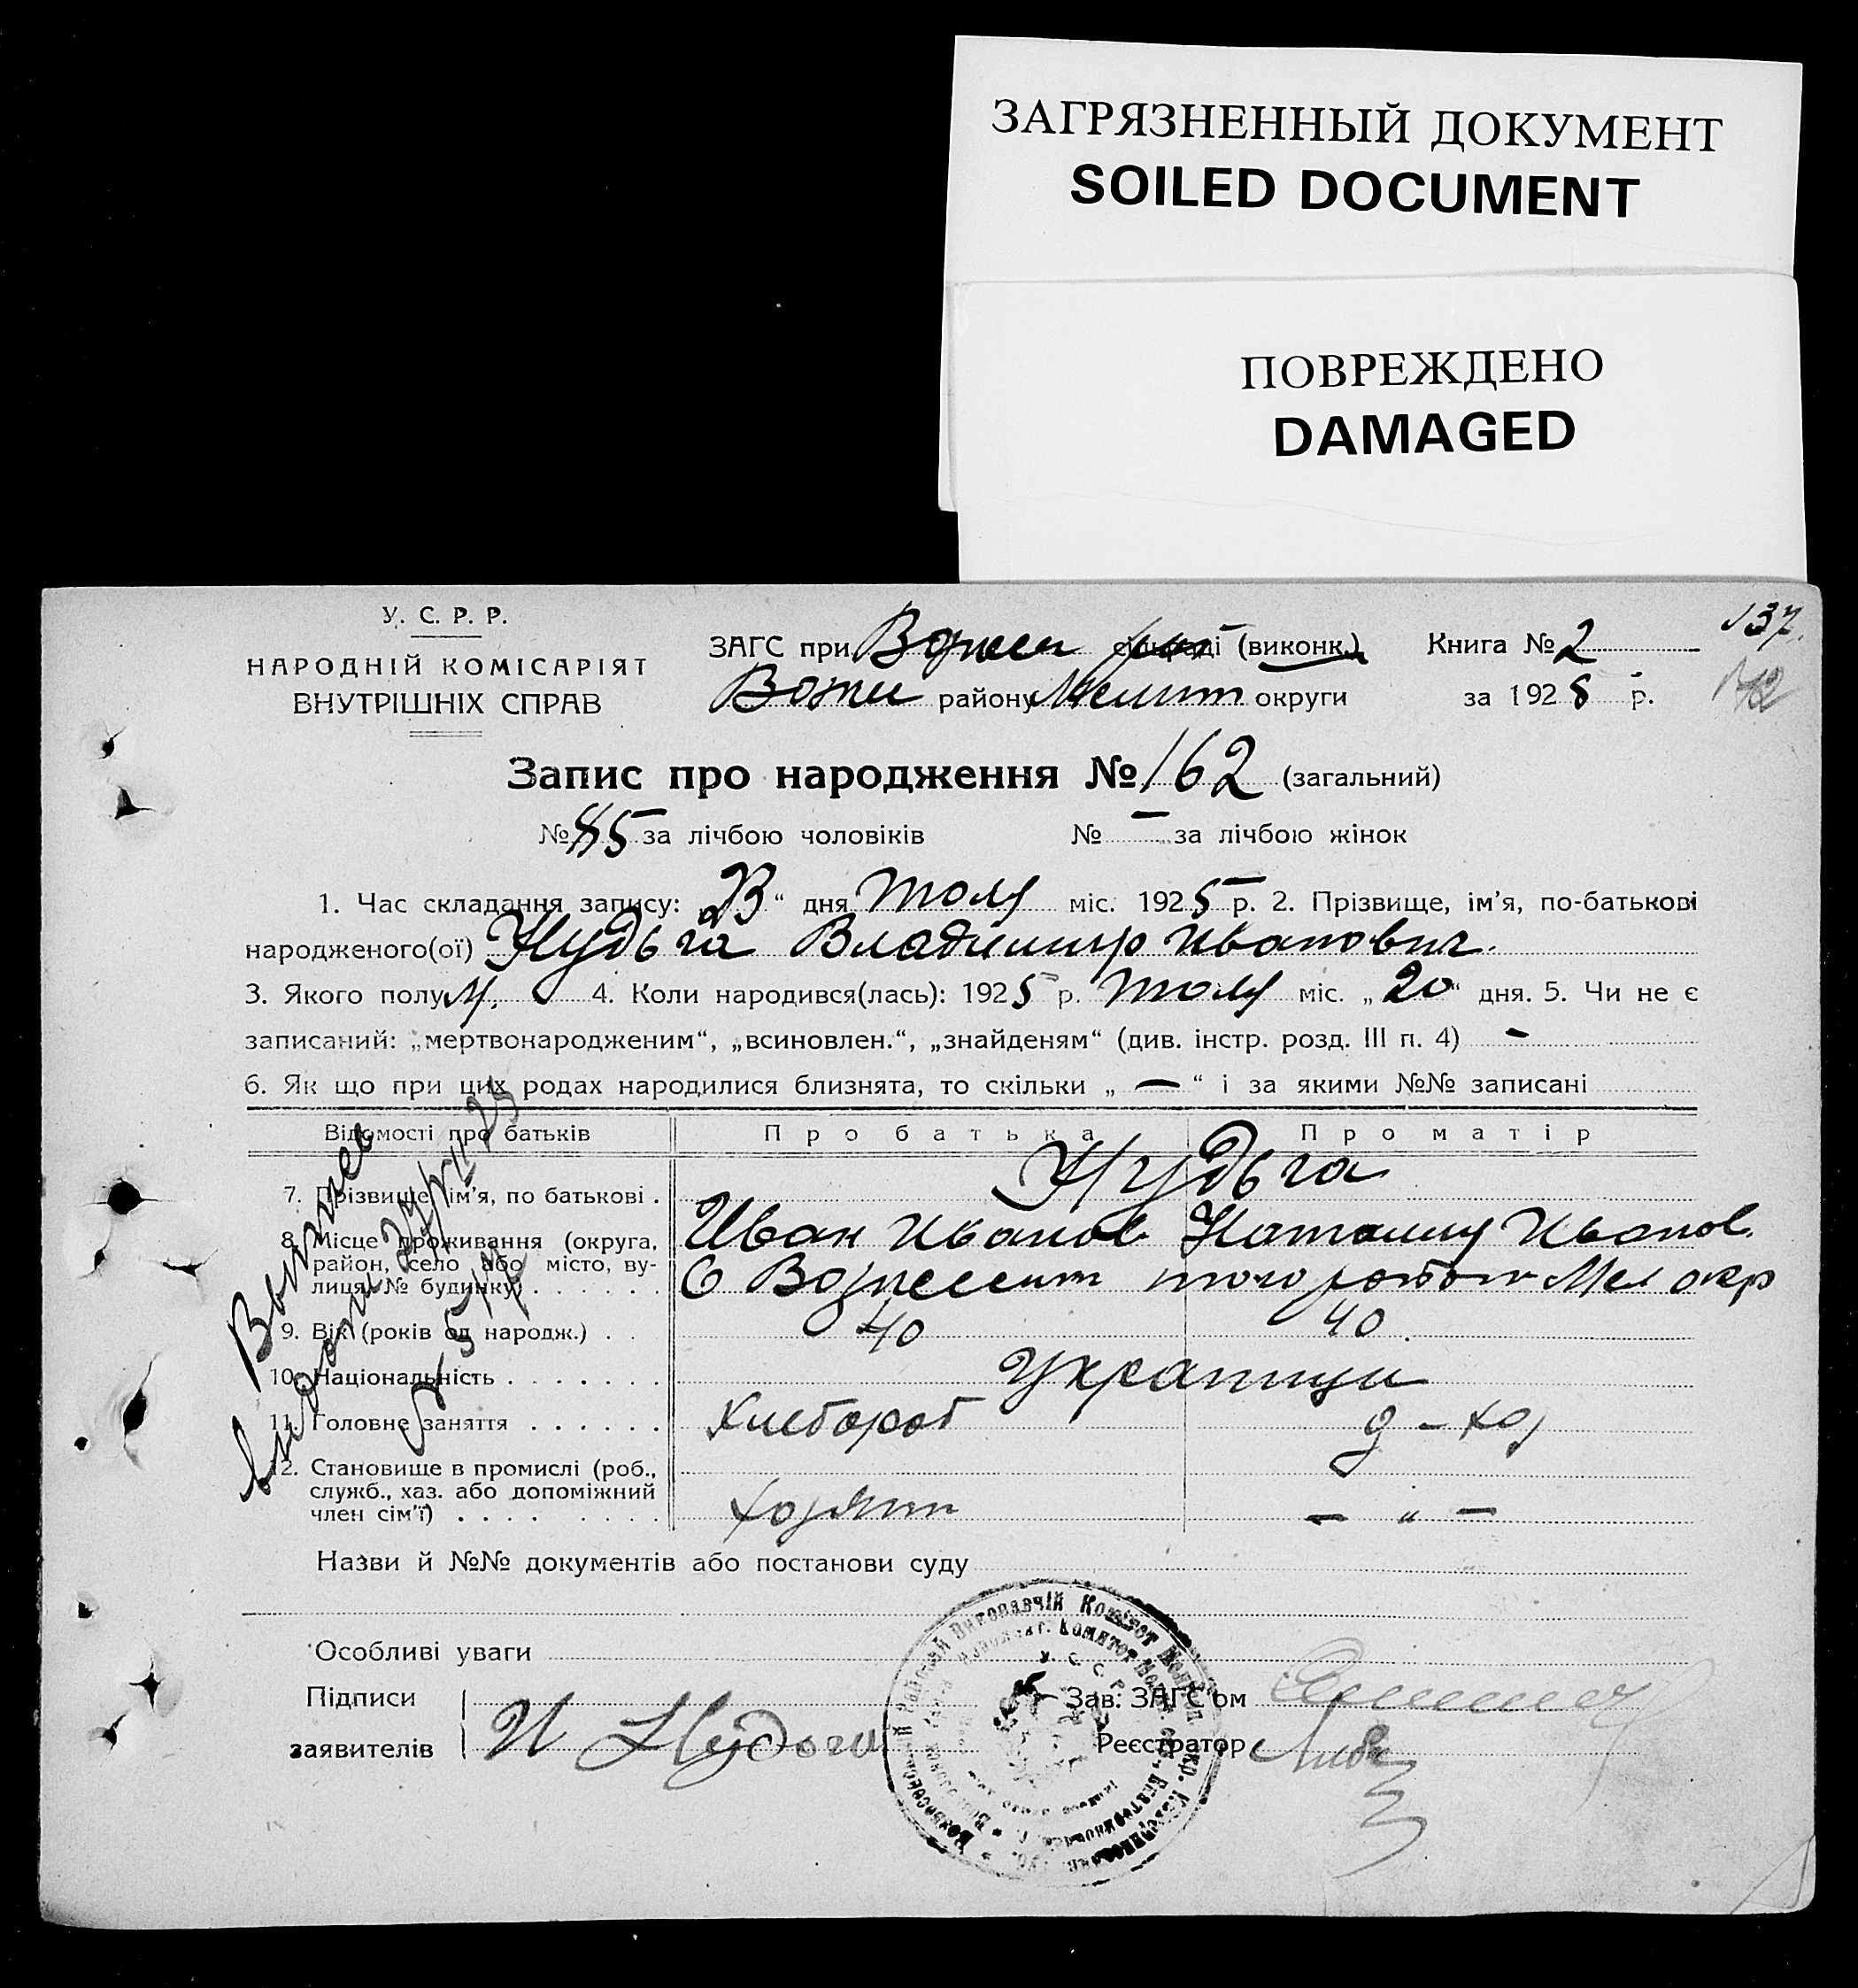 ЗАГРЯЗНЕННЫЙ ДОКУМЕНТ
SOILED DOCUMENT
ПОВРЕЖДЕНО
DAMAGED
137.
У. С. Р. Р.
НАРОДНІЙ КОМІСАРІЯТ
ВНУТРІШНІХ СПРАВ
ЗАГС при сільраді (виконк.) Книга № 2
району Мелит округи за 1925 р.
Запис про народження № 162 (загальний)
№ 85 за лічбою чоловіків № — за лічбою жінок
1. Час складання запису: „23“ дня июля міс. 1925 р. 2. Прізвище, ім'я, по-батькові
народженого(ої) Нудьга Владимир Иванович.
3. Якого полу М. 4. Коли народився(лась): 1925 р. июля міс. „20“ дня. 5. Чи не є
записаний: „мертвонародженим“, „всиновлен.“, „знайденям“ (див. інстр. розд. III п. 4) -
6. Як що при цих родах народилися близнята, то скільки „ — “ і за якими №№ записані
Відомості про батьків Про батька Про матір
Нудьга
7. Прізвище, ім'я, по батькові . Иван Иванов Наталия Иванов.
8. Місце проживання (округа,
район, село або місто, ву-
лиця, № будинку) . . . . . . С Вознесент того района Мел окр
9. Вік (років од народж.) . . 40 40.
10. Національність . . . . . . . Украинцы
11. Головне заняття . . . . . . Хлебороб д - хоз
12. Становище в промислі (роб.,
служб., хаз. або допоміжний
член сім'ї) . . . . . . . . хозяин — „ —
Выпись
выдана
Назви й №№ документів або постанови суду
Особливі уваги
Підписи
заявителів И Нудьга
Зав. ЗАГС'ом
Реєстратор
Виконавчій Комітет
У. С. С. Р.